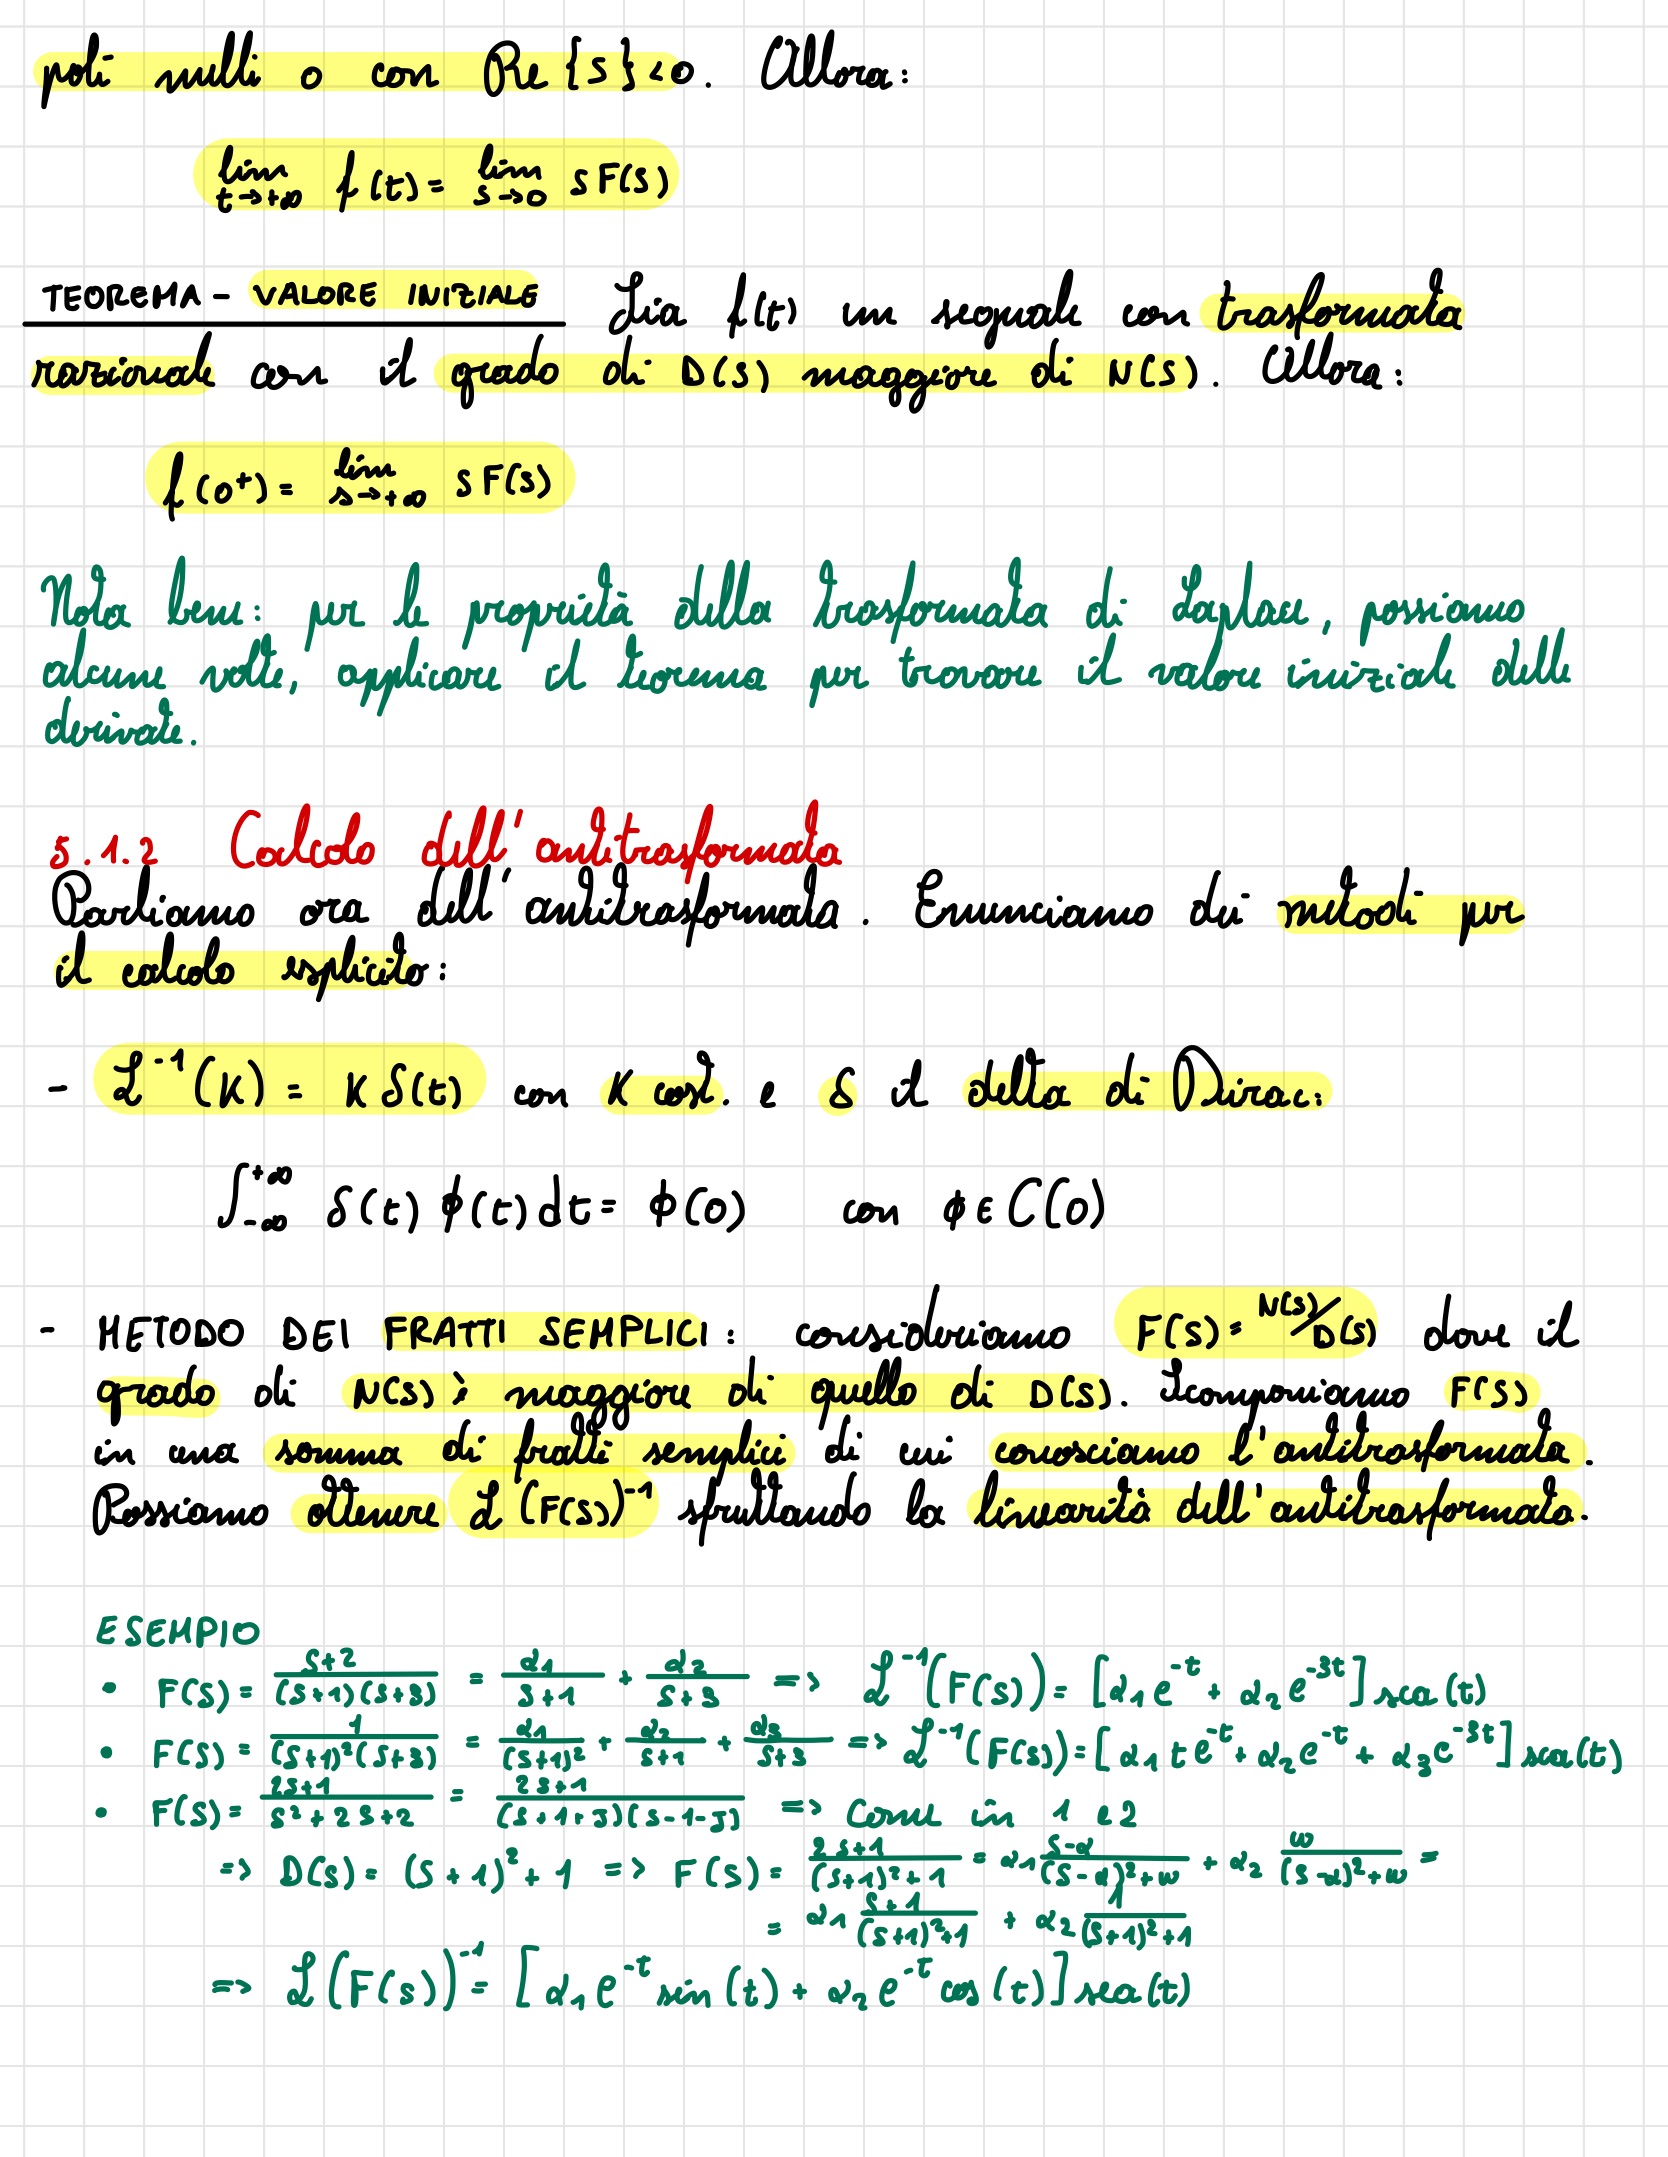 poli nulli o con Re{s}<0. Allora:
lim t→+∞ f(t) = lim s→0 sF(s)
TEOREMA - VALORE INIZIALE Sia f(t) un segnale con trasformata
razionale con il grado di D(s) maggiore di N(s). Allora:
f(0⁺) = lim s→+∞ sF(s)
Nota bene: per le proprietà della trasformata di Laplace, possiamo
alcune volte, applicare il teorema per trovare il valore iniziale delle
derivate.
5.1.2 Calcolo dell'antitrasformata
Parliamo ora dell'antitrasformata. Enunciamo dei metodi per
il calcolo esplicito:
- ℒ⁻¹(K) = K δ(t) con K cost. e δ il delta di Dirac:
∫₋∞⁺∞ δ(t) ϕ(t) dt = ϕ(0) con ϕ ∈ C(0)
- METODO DEI FRATTI SEMPLICI: consideriamo F(s) = N(s)/D(s) dove il
grado di N(s) è maggiore di quello di D(s). Scomponiamo F(s)
in una somma di fratti semplici di cui conosciamo l'antitrasformata.
Possiamo ottenere ℒ(F(s))⁻¹ sfruttando la linearità dell'antitrasformata.
ESEMPIO
• F(s) = (s+2)/((s+1)(s+3)) = α₁/(s+1) + α₂/(s+3) => ℒ⁻¹(F(s)) = [α₁e⁻ᵗ + α₂e⁻³ᵗ] sca(t)
• F(s) = 1/((s+1)²(s+3)) = α₁/(s+1)² + α₂/(s+1) + α₃/(s+3) => ℒ⁻¹(F(s)) = [α₁te⁻ᵗ + α₂e⁻ᵗ + α₃e⁻³ᵗ] sca(t)
• F(s) = (2s+1)/(s²+2s+2) = (2s+1)/((s+1+J)(s-1-J)) => Come in 1 e 2
=> D(s) = (s+1)²+1 => F(s) = (2s+1)/((s+1)²+1) = α₁ (s-α)/((s-α)²+ω) + α₂ ω/((s-α)²+ω) =
= α₁ (s+1)/((s+1)²+1) + α₂ 1/((s+1)²+1)
=> ℒ(F(s))⁻¹ = [α₁e⁻ᵗ sin(t) + α₂e⁻ᵗ cos(t)] sca(t)